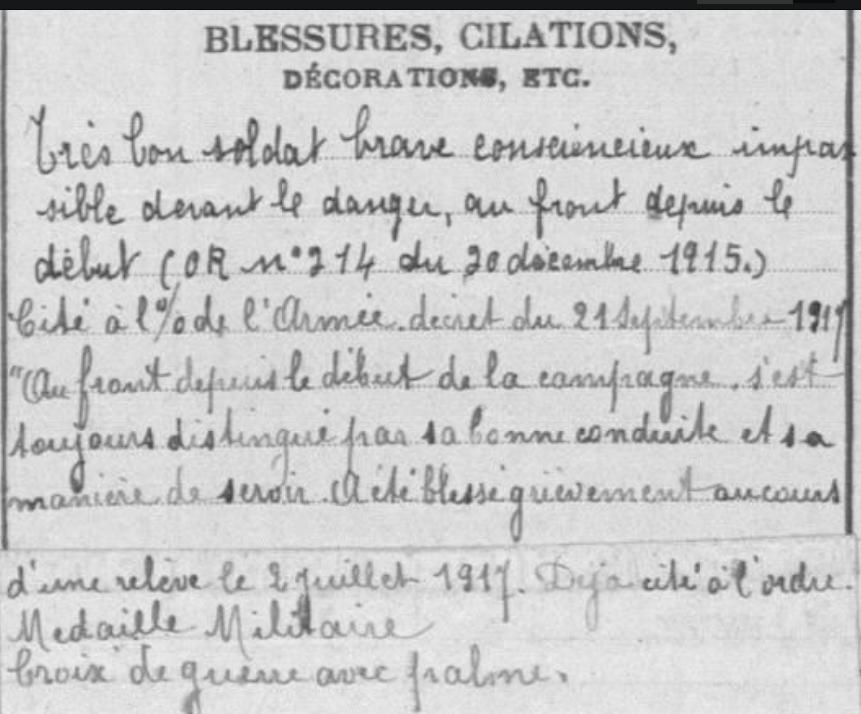 BLESSURES, CILATIONS,
DÉCORATIONS, ETC.
Très bon soldat brave consciencieux impas
sible devant le danger, au front depuis le
début (OR n° 214 du 20 décembre 1915.)
Cité à l'% de l'Armée. décret du 21 Septembre 1917
"Au front depuis le début de la campagne, s'est
toujours distingué par sa bonne conduite et sa
manière de servir. A été blessé grièvement au cours
d'une relève le 2 juillet 1917. Déjà cité à l'ordre.
Medaille Militaire
Croix de guerre avec palme.